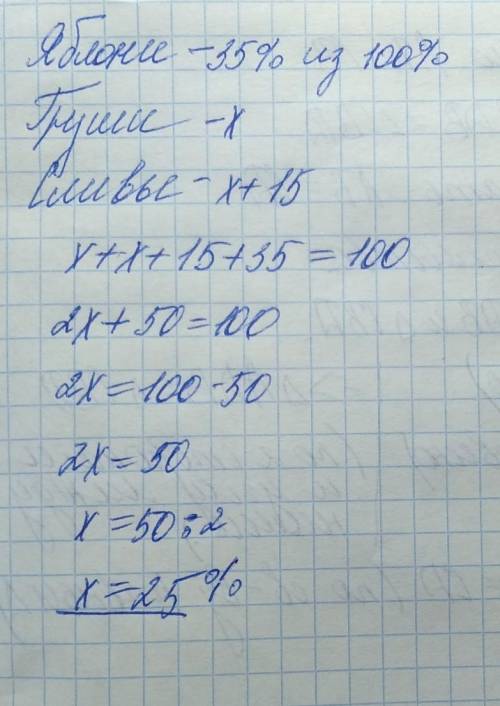 Яблони - 35% из 100%
Груши - х
Сливы - х + 15
х + х + 15 + 35 = 100
2х + 50 = 100
2х = 100 - 50
2х = 50
х = 50 : 2
х = 25%